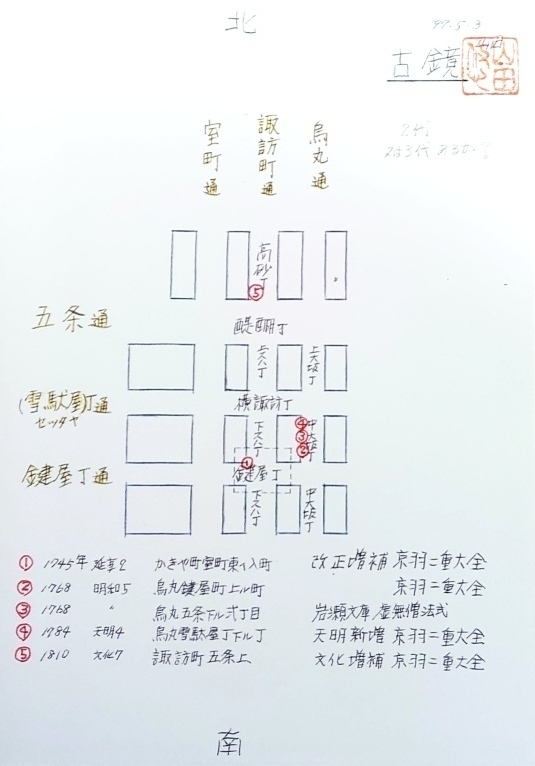 北
97.5.3
古鏡
室町通
諏訪町通
烏丸通
2代
高砂丁
⑤
五条通
醍醐丁
上スハ丁
上大坂丁
(雪駄屋丁通
セッタヤ
横諏訪丁
下スハ丁
④
③
②
中大坂丁
①
鍵屋丁通
鍵屋丁
下スハ丁
中大坂丁
① 1745年 延享2 かきや町室町東へ入町 改正増補 京羽二重大全
② 1768 明和5 烏丸鍵屋町上ル町 京羽二重大全
③ 1768 〃 烏丸五条下ル弐丁目 岩瀬文庫 虚無僧法式
④ 1784 天明4 烏丸雪駄屋丁下ル丁 天明新増 京羽二重大全
⑤ 1810 文化7 諏訪町五条上 文化増補 京羽二重大全
南